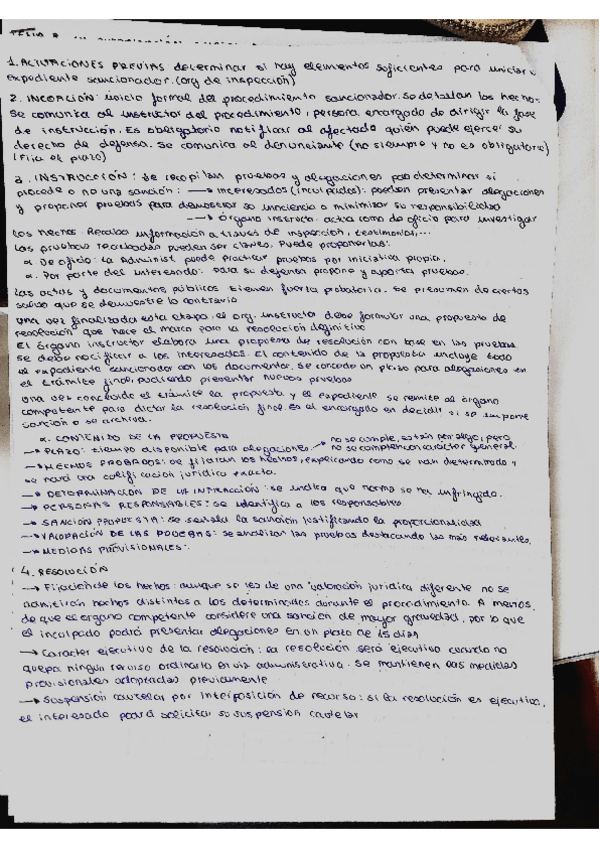 TEMA 7
1. ACTUACIONES PREVIAS determinar si hay elementos suficientes para iniciar
expediente sancionador. (org de inspección)
2. INCOACIÓN: inicio formal del procedimiento sancionador. Se detallan los hechos.
Se comunica al instructor del procedimiento, persona encargada de dirigir la fase
de instrucción. Es obligatorio notificar al afectado quién puede ejercer su
derecho de defensa. Se comunica al denunciante (no siempre y no es obligatorio)
(Fija el plazo)
3. INSTRUCCIÓN: Se recopilan pruebas y alegaciones para determinar si
procede o no una sanción: → interesados (inculpados): pueden presentar alegaciones
y proponer pruebas para demostrar su inocencia o minimizar su responsabilidad
→ Órgano instructo. actúa como de oficio para investigar
los hechos. Recaba información a través de inspección, testimonios,...
Las pruebas recabadas pueden ser claves. Puede proponerlas:
α De oficio: la Administ puede practicar pruebas por iniciativa propia.
α. Por parte del interesado: para su defensa propone y aporta pruebas.
Las actas y documentos públicos tienen fuerza probatoria. Se presumen de ciertos
salvo que se demuestre lo contrario
Una vez finalizada esta etapa, el org. instructo debe formular una propuesta de
resolución que hace el marco para la resolución definitiva
El órgano instructor elabora una propuesta de resolución con base en las pruebas
se debe notificar a los interesados. El contenido de la propuesta incluye todo
el expediente sancionador con los documentos. Se concede un plazo para alegaciones en
el trámite final, pudiendo presentar nuevas pruebas
Una vez concluido el trámite la propuesta y el expediente se remite al órgano
competente para dictar la resolución final. Es el encargado en decidir si se impone
sanción o se archiva.
α. CONTENIDO DE LA PROPUESTA
→ PLAZO: tiempo disponible para alegaciones → no se cumple, están por algo, pero
no se comprenden carácter general.
→ HECHOS PROBADOS: se fijaran los hechos, explicando como se han determinado y
se hará una calificación jurídica exacta.
→ DETERMINACIÓN DE LA INFRACCIÓN: se indica que norma se ha infringido.
→ PERSONAS RESPONSABLES: se identifica a los responsables
→ SANCIÓN PROPUESTA: se señala la sanción justificando la proporcionalidad
→ VALORACIÓN DE LAS PRUEBAS: se analizan las pruebas destacando las más relevantes.
→ MEDIDAS PROVISIONALES:
4. RESOLUCIÓN
→ Fijación de los hechos: aunque se les de una valoración jurídica diferente no se
admitirán hechos distintos a los determinados durante el procedimiento. A menos
de que el órgano competente considere una sanción de mayor gravedad, por lo que
el inculpado podrá presentar alegaciones en un plazo de 15 días
→ Carácter ejecutivo de la resolución: la resolución será ejecutiva cuando no
quepa ningún recurso ordinario en vía administrativa. Se mantienen las medidas
provisionales adoptadas previamente
→ Suspensión cautelar por interposición de recurso: si la resolución es ejecutiva,
el interesado podrá solicitar su suspensión cautelar